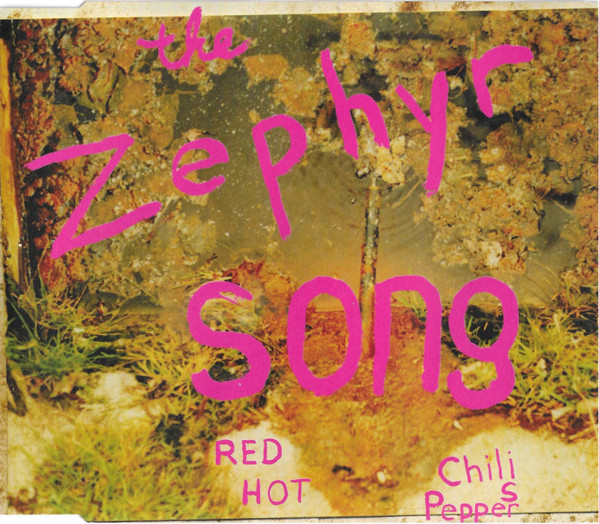 the
Zephyr
song
RED
HOT
Chili
Peppers